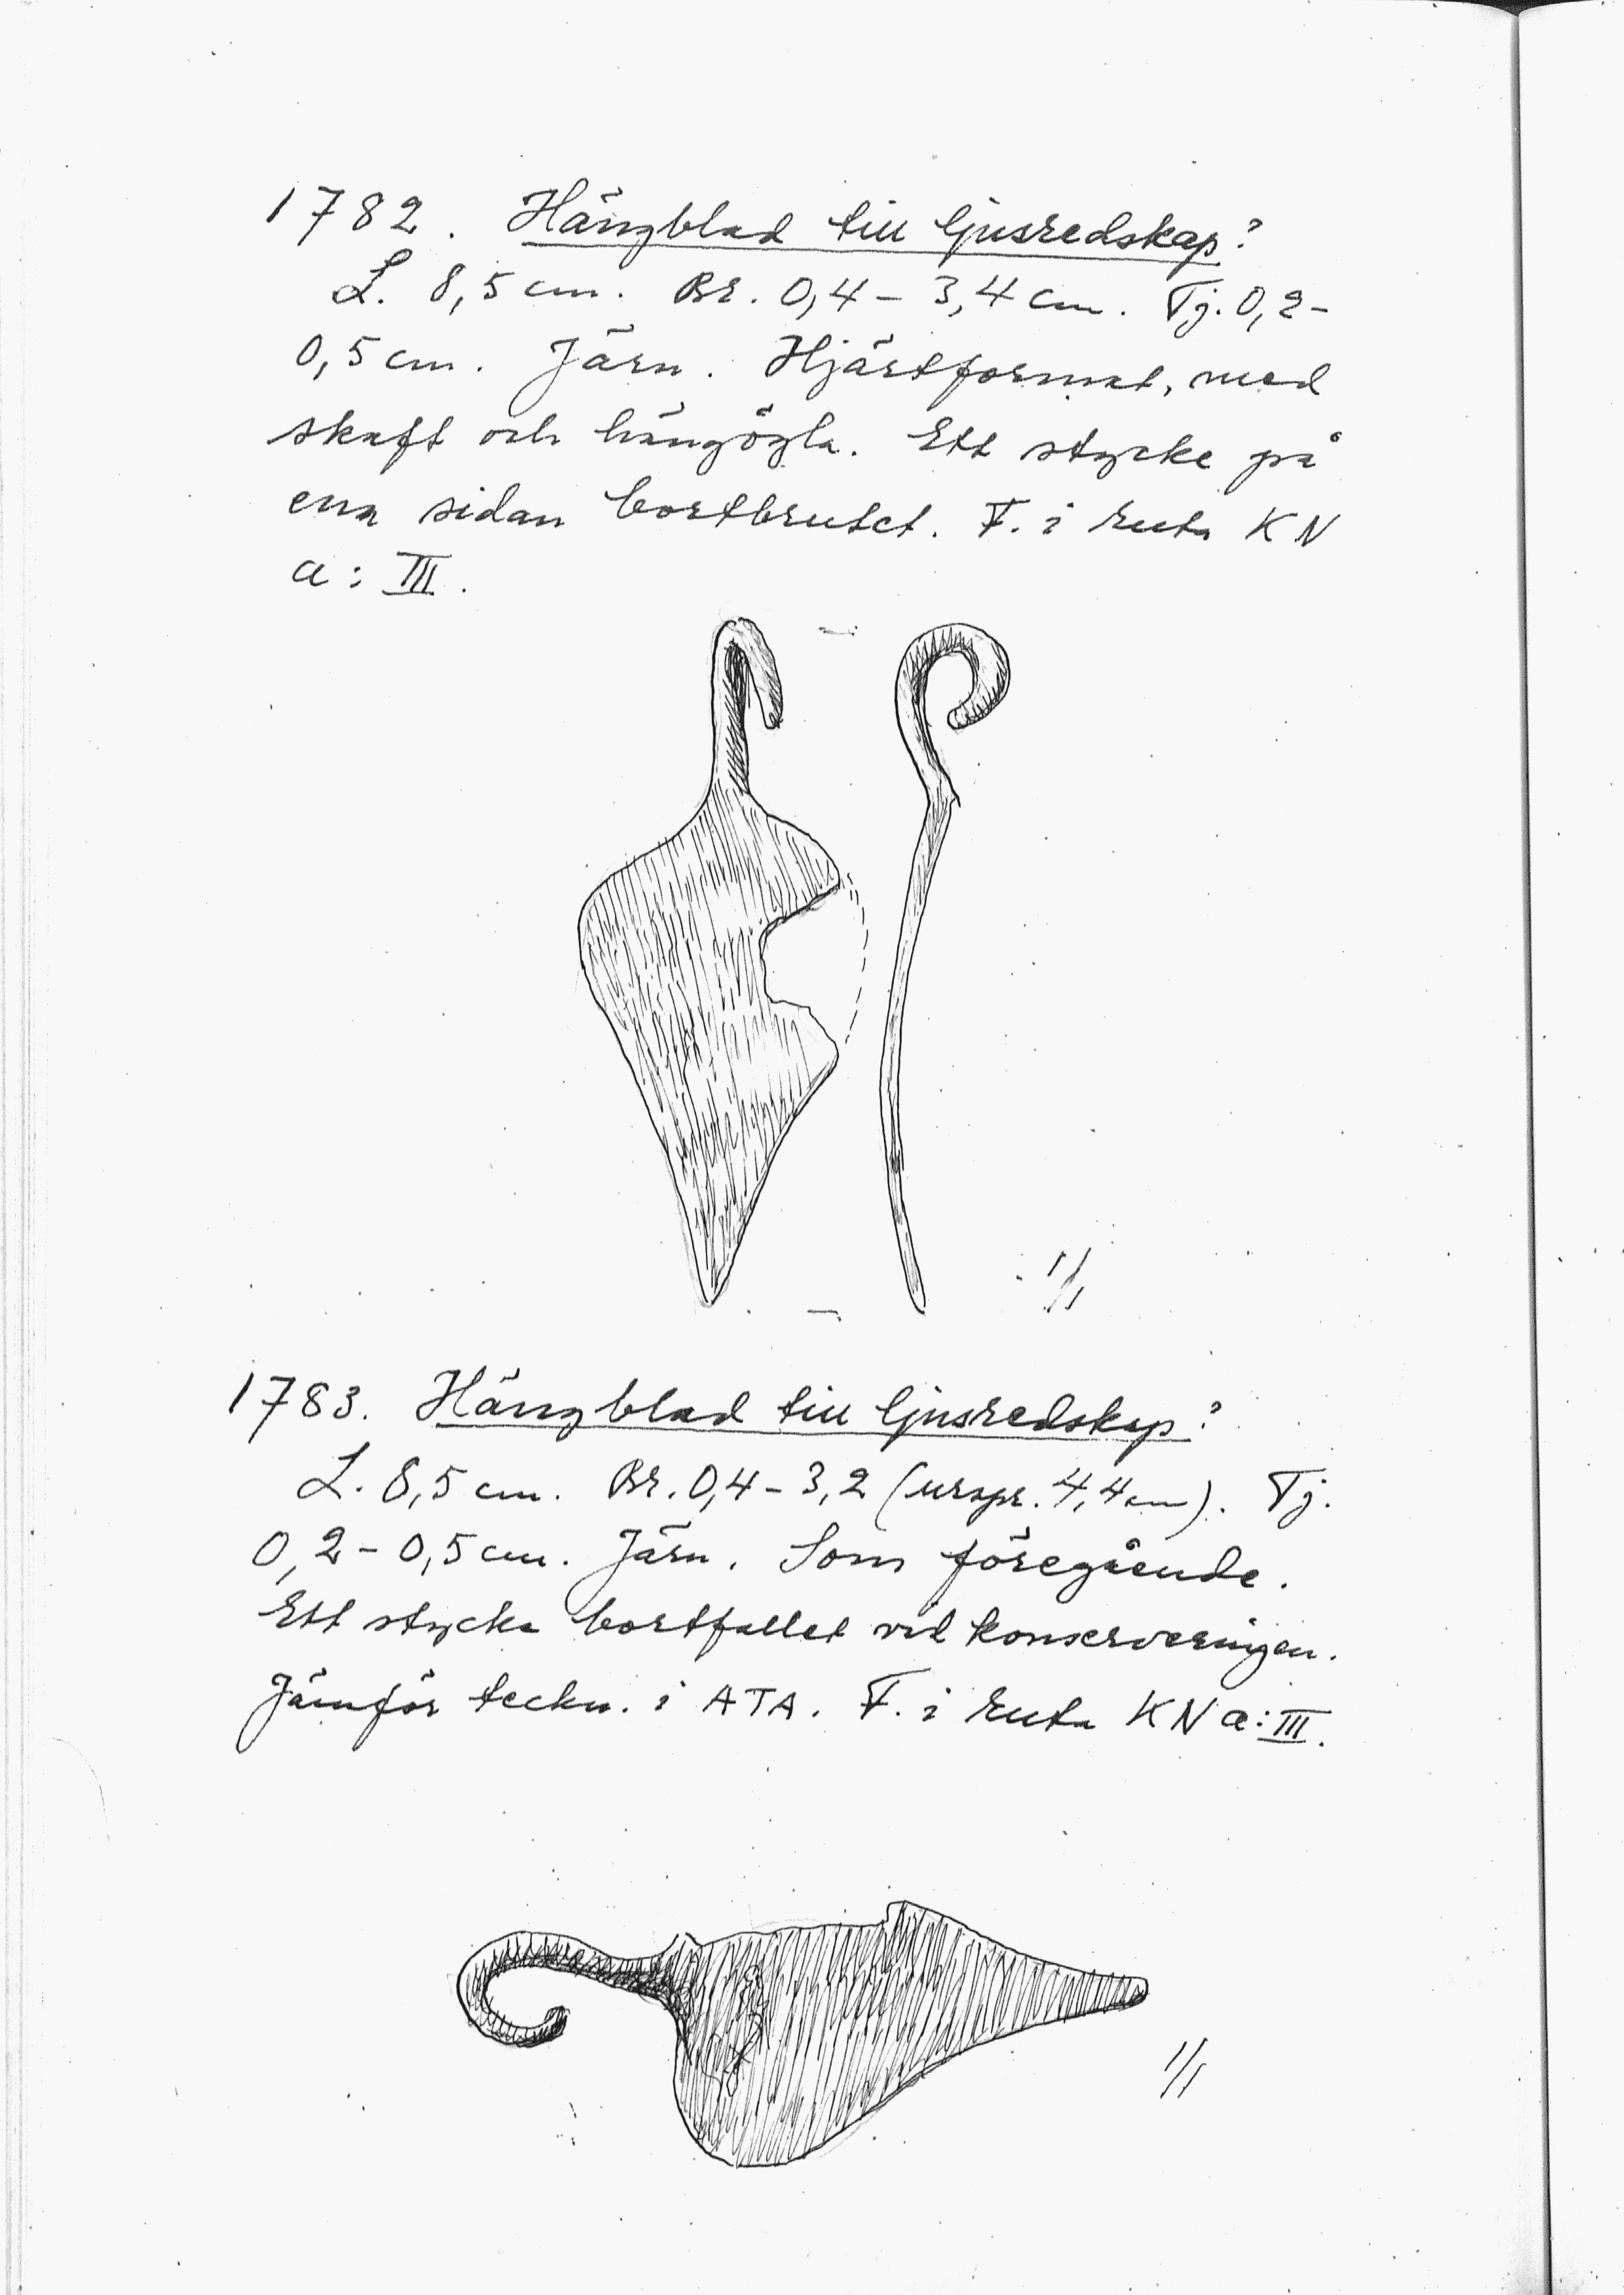 1782. Hängblad till ljusredskap?
L. 8,5 cm. Br. 0,4 - 3,4 cm. Tj. 0,2 -
0,5 cm. Järn. Hjärtformat, med
skaft och hängögla. Ett stycke på
ena sidan bortbrutet. F. i ruta KN
a: III.
1/1
1783. Hängblad till ljusredskap?
L. 8,5 cm. Br. 0,4 - 3,2 (urspr. 4,4 cm). Tj.
0,2 - 0,5 cm. Järn. Som föregående.
Ett stycke bortfallet vid konserveringen.
Jämför teckn. i ATA. F. i ruta KN a: III.
1/1